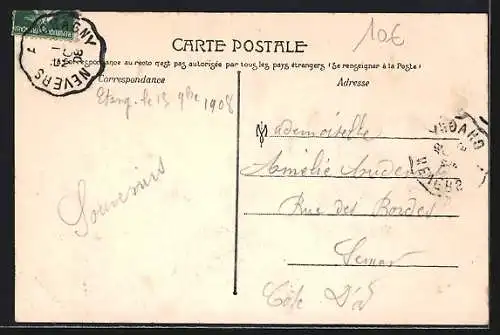 10€
CARTE POSTALE
La Correspondance au recto n'est pas autorisée par tous les pays étrangers (Se renseigner à la Poste)
Correspondance
Adresse
Etang. le 13 9bre 1908
Mademoiselle
Amélie
Souvenirs
Rue des Bordes
Semur
Côte D'or
NEVERS
NEVERS